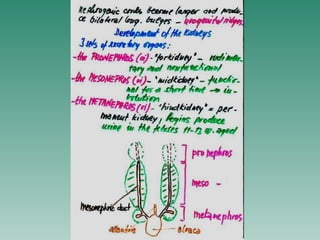 Nephrogenic cords become larger and produ-
ce bilateral long. bulges - urogenital ridges.
Development of the Kidneys
3 sets of excretory organs:
-the PRONEPHROS (oi) - "forkidney" - rudimen-
tary and nonfunctional
-the MESONEPHROS (oi) - "midkidney" - functio-
nal for a short time → in-
volution
-the METANEPHROS (oi) - "hindkidney" = per-
manent kidney, begins produce
urine in the fetuses 11-13 w. aged
pronephros
meso -
mesonephric duct
metanephros
allantois
cloaca